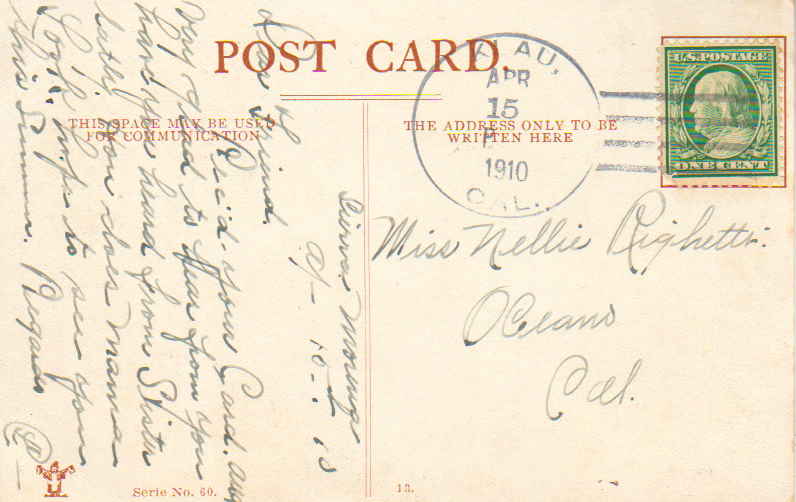 POST CARD.
THIS SPACE MAY BE USED
FOR COMMUNICATION
THE ADDRESS ONLY TO BE
WRITTEN HERE
ALAU,
APR
15
P
1910
CAL.
U.S. POSTAGE
ONE CENT
Miss Nellie Righetti.
Oceano
Cal.
4/-10-10
Dear Friend.
Rec'd your Card. am
Very Glad to hear from you
have you heard from Sister
lately you does Mama
Look to see you
this Summer. Regards
Serie No. 60.
13.